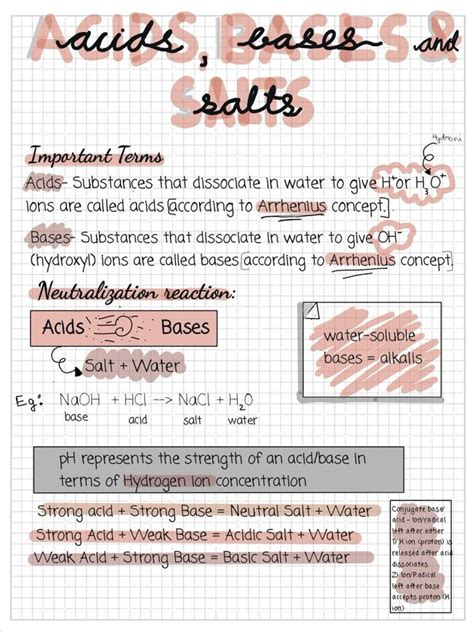 ACIDS, BASES &
SALTS
acids, bases and
salts
Important Terms
Acids- Substances that dissociate in water to give H⁺or H₃O⁺
ions are called acids [according to Arrhenius concept]
Bases- Substances that dissociate in water to give OH⁻
(hydroxyl) ions are called bases [according to Arrhenius concept]
Neutralization reaction:
Acids Bases
Salt + Water
water-soluble
bases = alkalis
Eg: NaOH + HCl --> NaCl + H₂O
base acid salt water
pH represents the strength of an acid/base in
terms of Hydrogen Ion concentration
Strong acid + Strong Base = Neutral Salt + Water
Strong Acid + Weak Base = Acidic Salt + Water
Weak Acid + Strong Base = Basic Salt + Water
Conjugate base/
acid - Ion/radical
left after either
1) H ion (proton) is
released after acid
dissociates
2) Ion/Radical
left after base
accepts proton (H
ion)